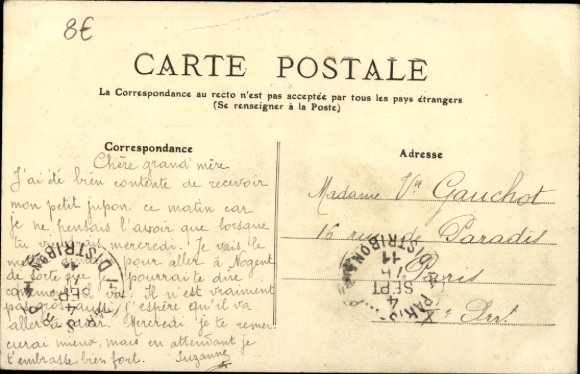 8€
CARTE POSTALE
La Correspondance au recto n'est pas acceptée par tous les pays étrangers
(Se renseigner à la Poste)
Correspondance
Chère grand'mère
J'ai été bien contente de recevoir
mon petit jupon ce matin car
je ne pensais l'avoir que lorsque
tu mercredi. Je vais le
pour aller à Nogent
de sorte que pourrai te dire
comment il va. Il n'est vraiment
pas gros aussi j'espère qu'il va
aller Mercredi je te remer
cierai mieux, mais en attendant je
t'embrasse bien fort. Suzanne
Adresse
Madame Vve Gauchot
16 rue de Paradis
Paris
Xe Arrt
DISTRIBON
11
4
SEPT
PARIS
DISTRIBON
11
SEPT
4
PARIS